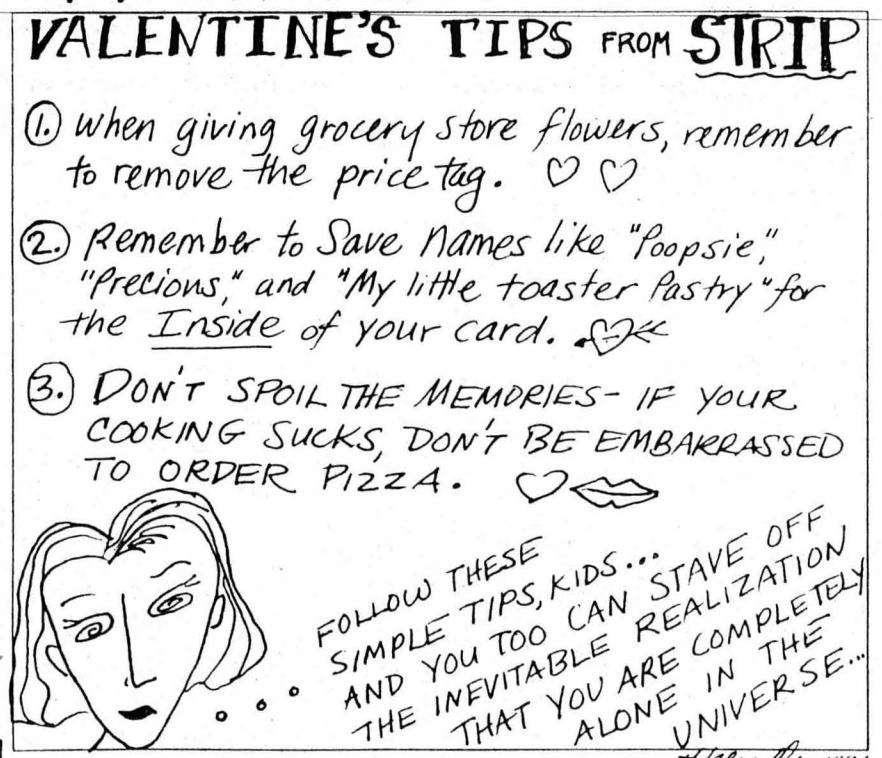 VALENTINE'S TIPS FROM STRIP
1. When giving grocery store flowers, remember
to remove the price tag.
2. Remember to Save names like "Poopsie,"
"Precious," and "My little toaster Pastry" for
the Inside of your card.
3. DON'T SPOIL THE MEMORIES- IF YOUR
COOKING SUCKS, DON'T BE EMBARRASSED
TO ORDER PIZZA.
FOLLOW THESE
SIMPLE TIPS, KIDS...
AND YOU TOO CAN STAVE OFF
THE INEVITABLE REALIZATION
THAT YOU ARE COMPLETELY
ALONE IN THE
UNIVERSE...